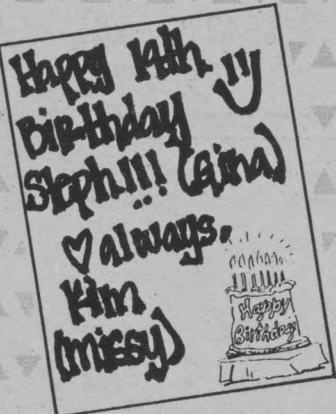 Happy
Birthday
Steph!!! (Gina)
♡ always,
Kim
(missy)
Happy
Birthday